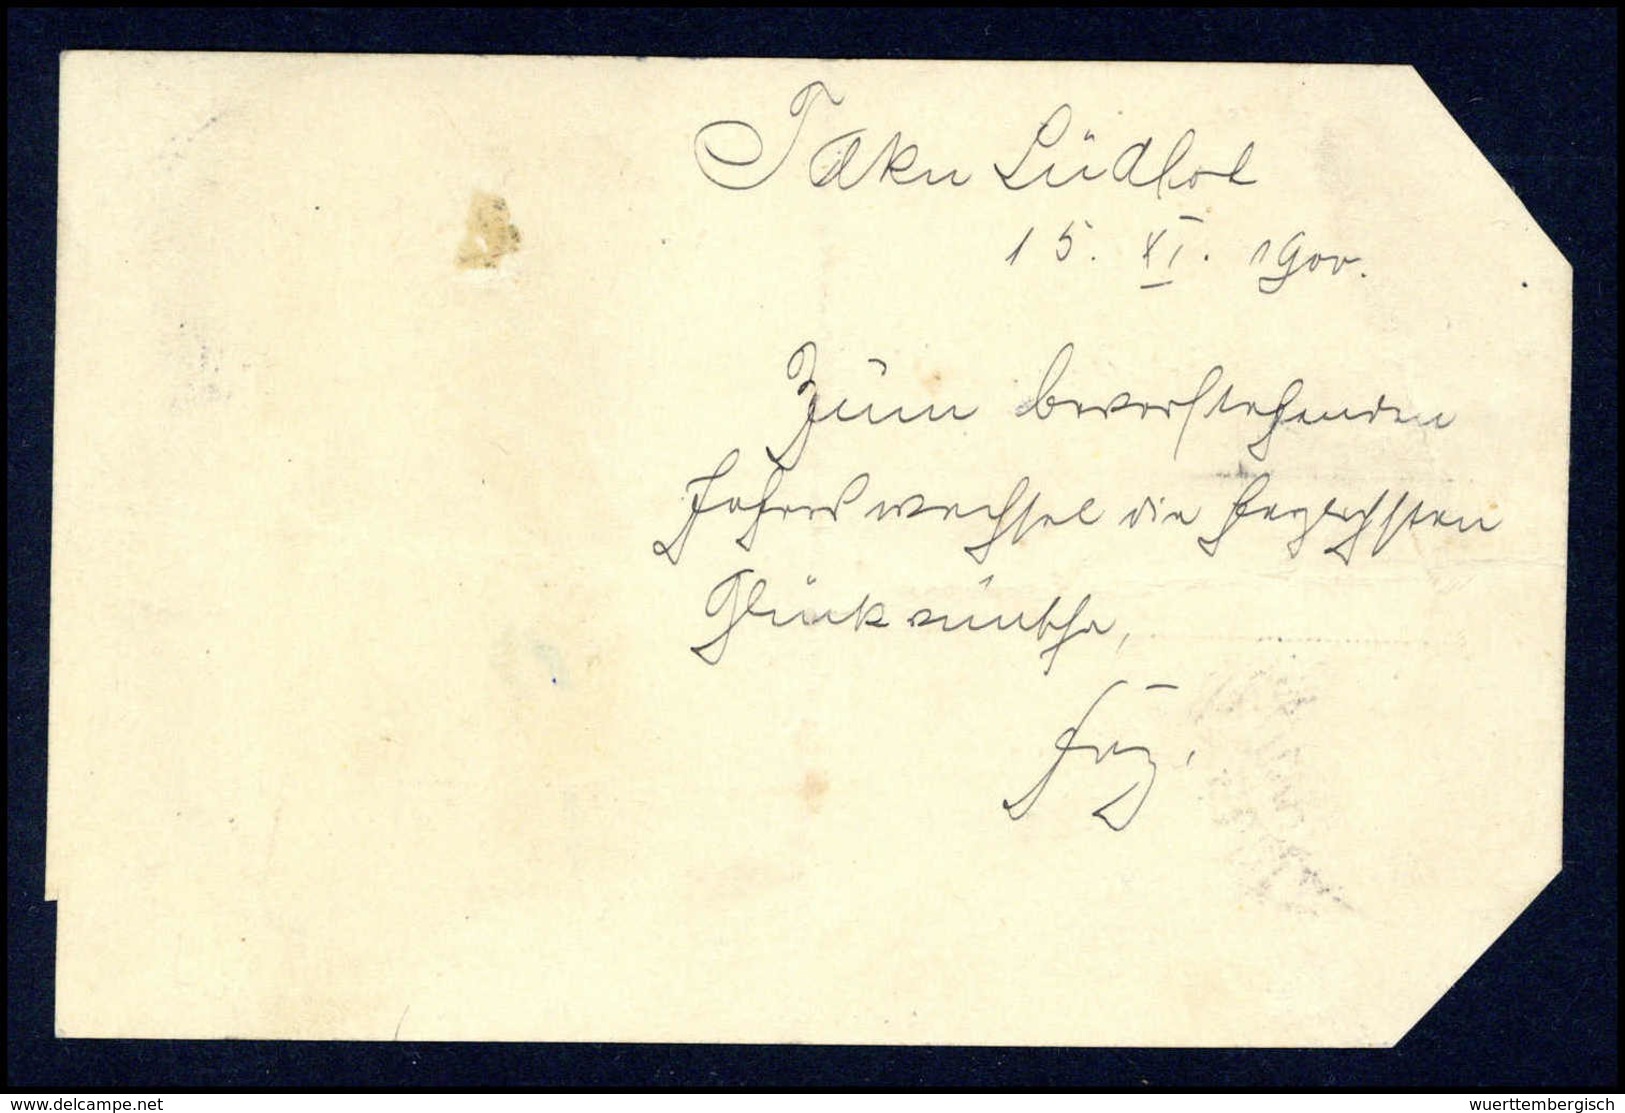 Taku Südfort
15. XI. 1900.
Zum bevorstehenden
Jahreswechsel die herzlichsten
Glückwünsche,
Fritz.
delcampe.net
wuerttembergisch